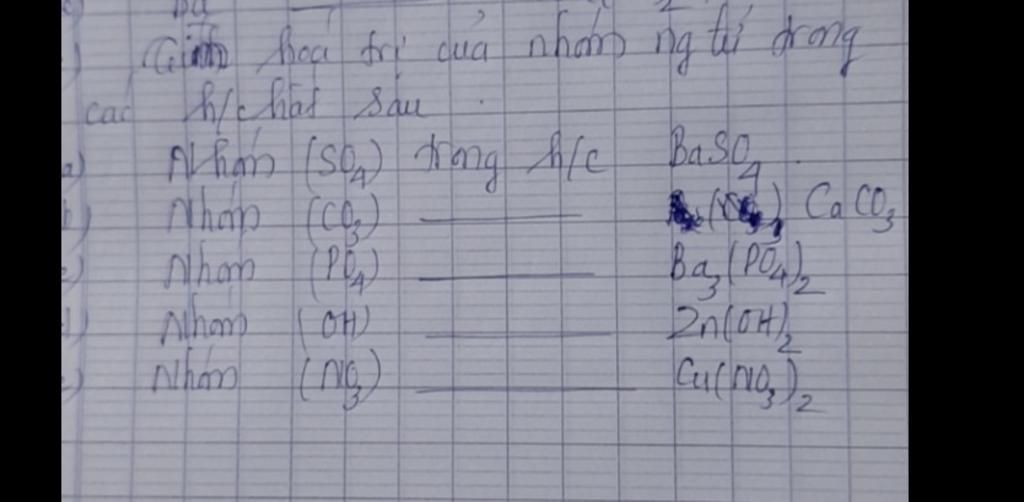 Tính hoá trị của nhóm ng tử trong
các h/c hất sau .
a) Nhóm (SO₄) trong h/c BaSO₄
b) Nhóm (CO₃) ——— CaCO₃
c) Nhóm (PO₄) ——— Ba₃(PO₄)₂
d) Nhóm (OH) ——— Zn(OH)₂
e) Nhóm (NO₃) ——— Cu(NO₃)₂